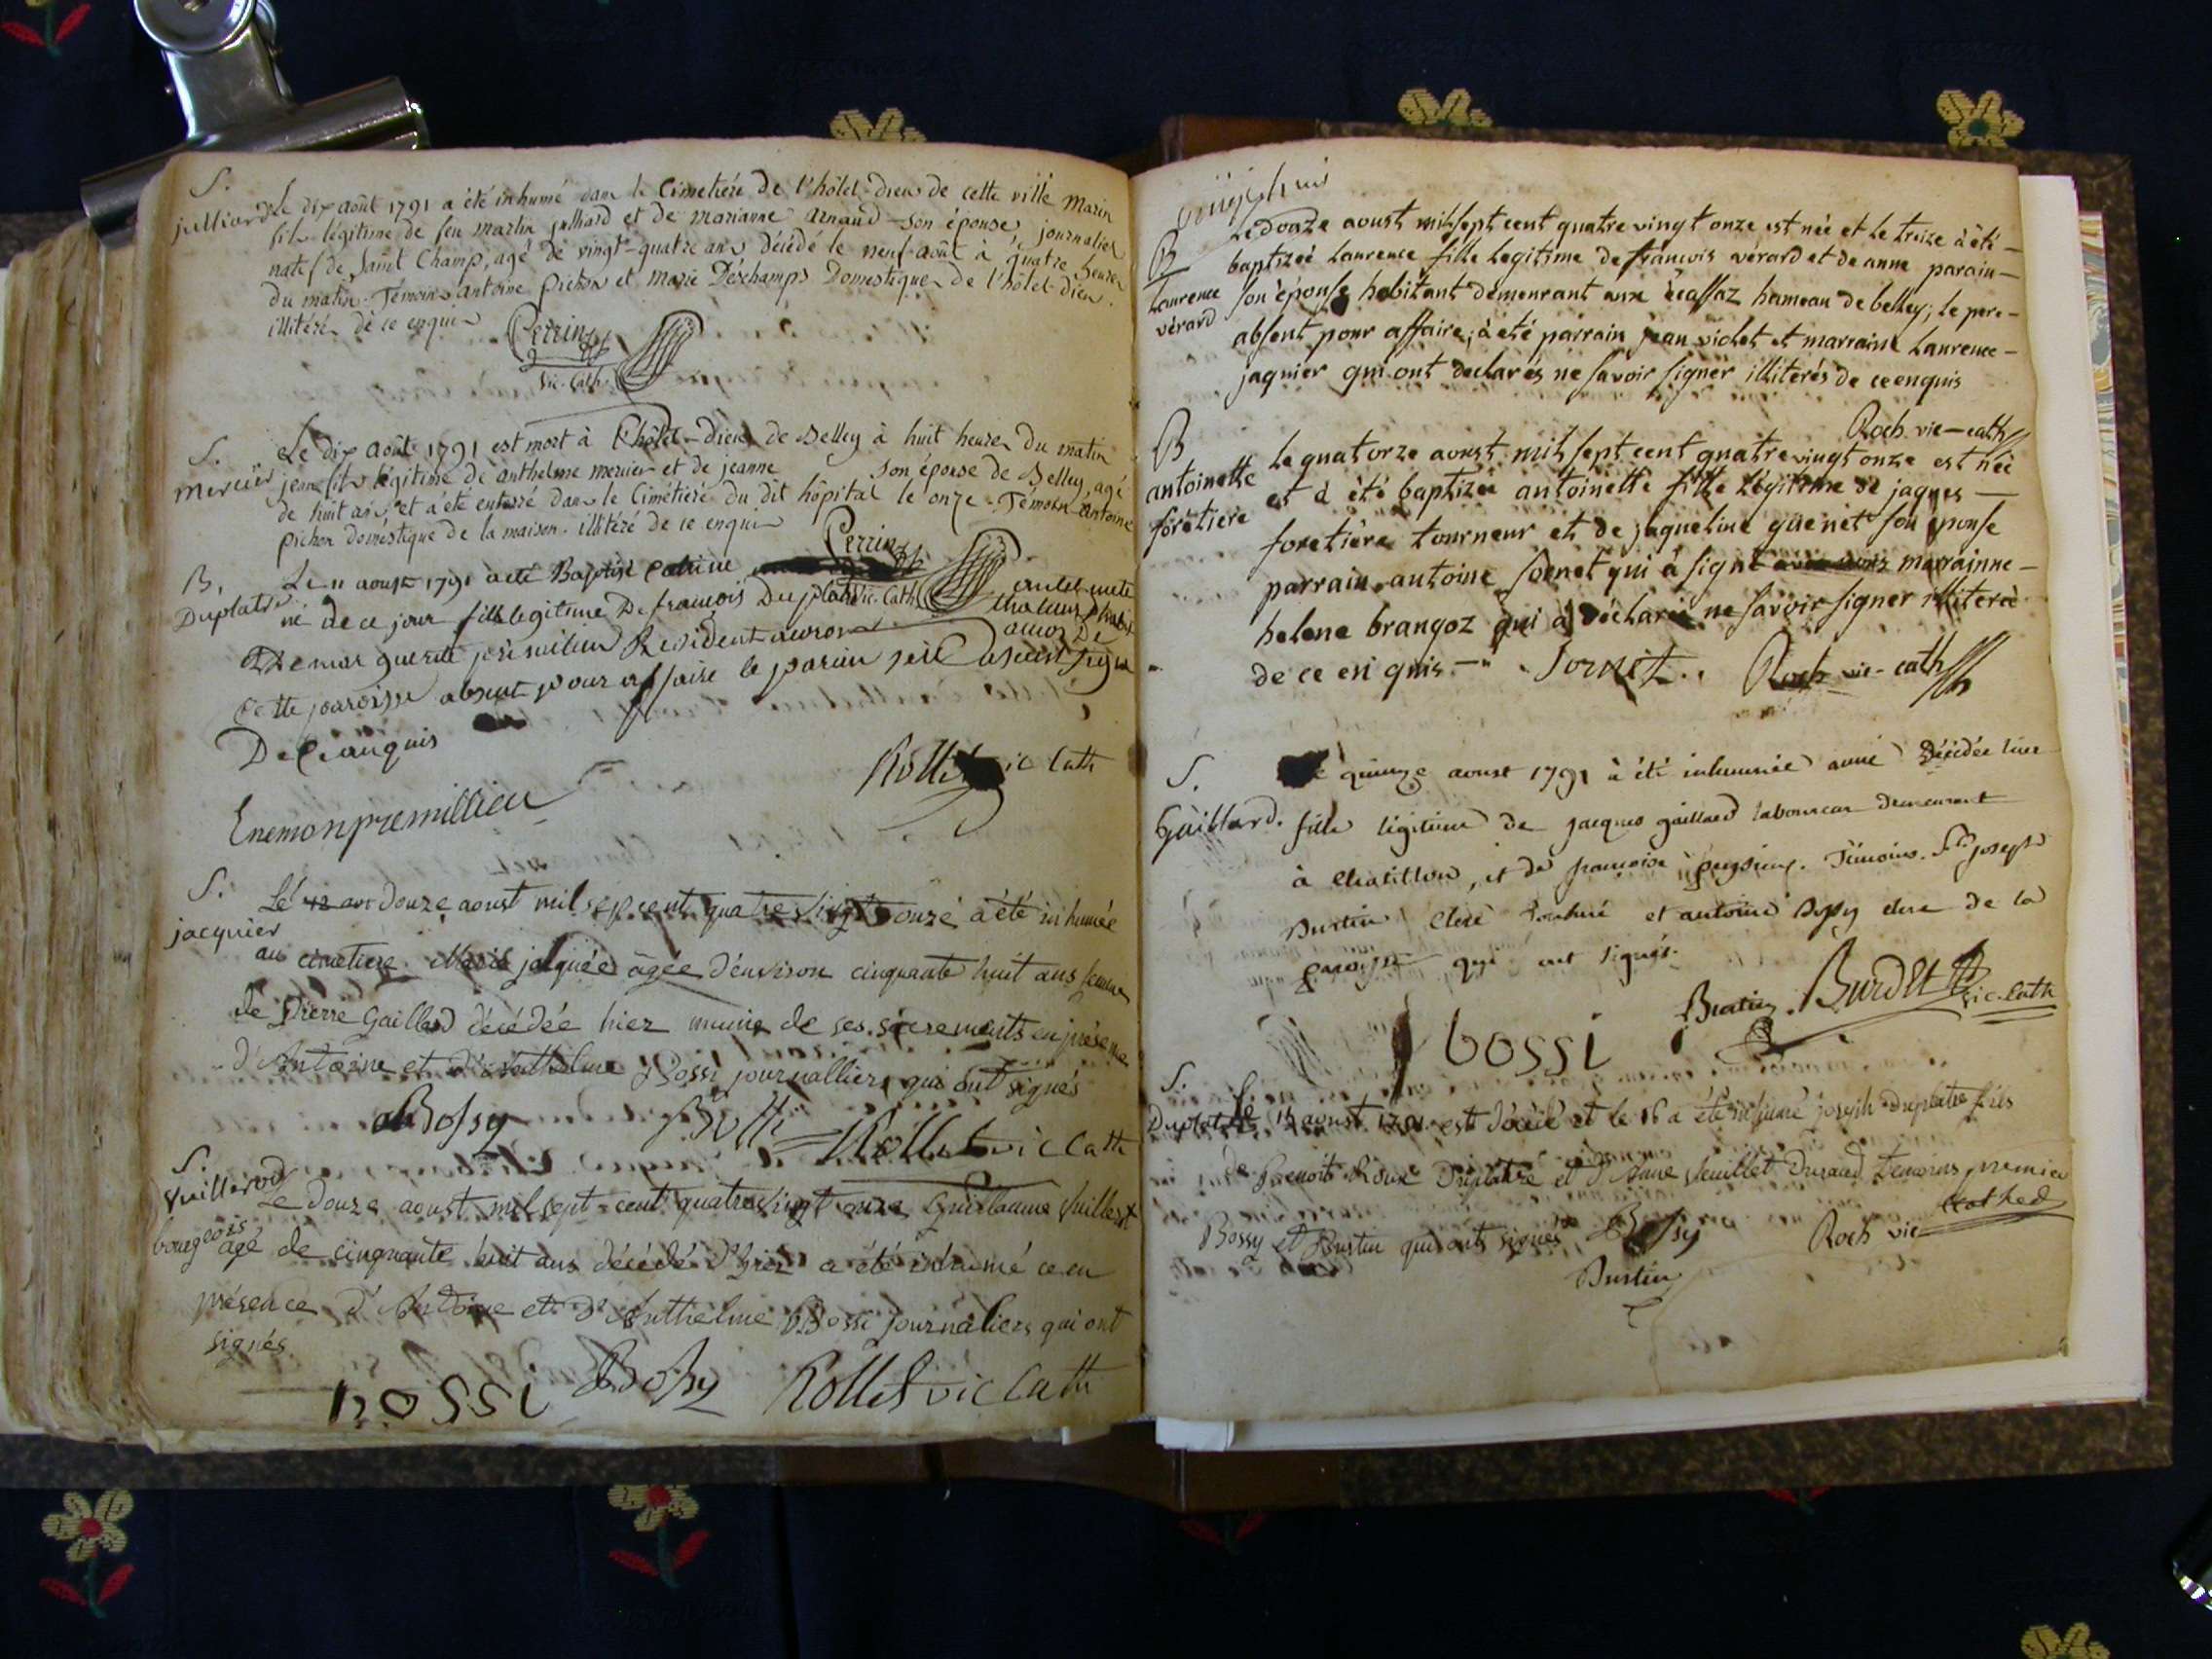 S.
julliard Le dix août 1791 a été inhumé dans le Cimetiére de l'hôtel-dieu de cette ville Marin
fils légitime de feu martin julliard et de marianne arnaud son épouse, journalier
natif de saint Champ, agé de vingt-quatre ans décédé le neuf août à quatre heures
du matin. Témoins antoine pichon et marie Deschamps Domestiques de l'hôtel-dieu.
illitérés de ce enquis
Perrin
vic. Cath.
S. Le dix août 1791 est mort à l'hôtel-dieu de Belley à huit heures du matin
mercier jean fils légitime de anthelme mercier et de jeanne son épouse de Belley, agé
de huit ans et a été enterré dans le Cimétiére du dit hôpital le onze. Témoin antoine
pichon doméstique de la maison. illitéré de ce enquis
Perrin
vic. Cath
B, Le 11 aoust 1791 a eté Baptisé
Duplatre né de ce jour fill legitime De francois Duplatre
De marguerite premilieu Resident
cette paroisse absent pour affaire le parain
De ce anquis
Rollet vic Cath
Enemon premillieu
S. Lé douze aoust mil sept cent quatre vingt onze a été inhumée
jacquier
au cimetiere. Marie jaquier âgée d'environ cinquante huit ans femme
de Pierre Gaillard décédée hier munie de ses sacrements en présence
d'Antoine et d'Anthelme Bossi journalliers qui ont signés
aBossy Rollet vic Cath
S.
Vuillerod Le douze aoust mil sept cent quatre vingt onze Guillaume Vuillerot
bourgeois
agé de cinquante huit ans décédé d'hier a été inhumé ce en
présence d'Antoine et d'Anthelme Bossi journaliers qui ont
signés.
BOSSI Bossy Rollet vic Cath
Le douze aoust mil sept cent quatre vingt onze est née et le treize à êté
B baptizeé Laurence fille legitime de francois vérard et de anne parain
Laurence son épouse habitant demeurant aux écassaz hameau de belley; le pere
vérard
absent pour affaire; à eté parrain jean violet et marraine Laurence
jaquier qui ont declarés ne savoir signer illiterés de ce enquis
Roch. vic-cath
B
antoinette le quatorze aoust mil sept cent quatre vingt onze est née
forêtiere et à été baptizée antoinette fille légitime de jaques
foretiére tourneur et de jaqueline guenet son épouse
parrain antoine sornet qui à signé marrainne
helene brangoz qui à déclaré ne savoir signer illiterée
de ce en quis Sornet. Roch vic-cath
S. quinze aoust 1791 à été inhumée anne Décédée hier
Gaillard. fille légitime de jacques gaillard laboureur demeurant
à Chatillon, et de françoise Témoins. joseph
Burtin Clerc tonsuré et antoine Bossy clerc de la
paroisse qui ont signés.
bossi Burtin. Burdet vic-Cath
S.
Duplatre Le 15 aoust 1791 est décédé et le 16 a été inhumé joseph duplatre fils
de Benoit Roux Duplatre et d'Anne feuillet Durand Temoins premier
Bossy et Burtin qui ont signés Bossy Roch vic Cathed
Burtin